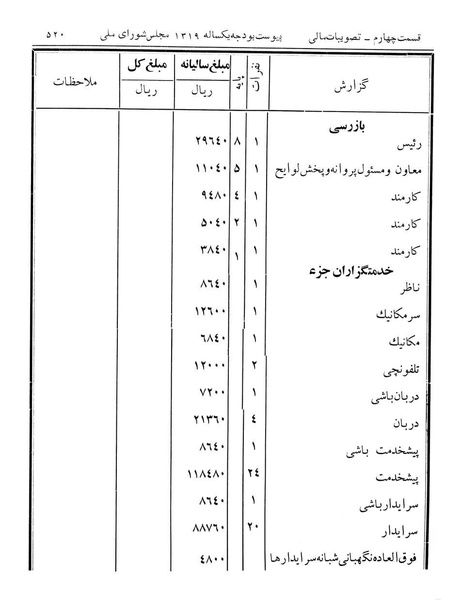 قسمت چهارم ـ تصویبات مالی پیوست بودجه یکساله ۱۳۱۹ مجلس شورای ملی ۵۲۰
گزارش نفرات پایه مبلغ سالیانه ریال مبلغ کل ریال ملاحظات
بازرسی
رئیس ۱ ۸ ۲۹٦٤۰
معاون و مسئول پروانه و پخش لوایح ۱ ۵ ۱۱۰٤۰
کارمند ۱ ٤ ۹٤۸۰
کارمند ۱ ۲ ۵۰٤۰
کارمند ۱ ۱ ۳۸٤۰
خدمتگزاران جزء
ناظر ۱ ۸٦٤۰
سرمکانیك ۱ ۱۲٦۰۰
مکانیك ۱ ٦۸٤۰
تلفونچی ۲ ۱۲۰۰۰
دربان باشی ۱ ۷۲۰۰
دربان ٤ ۲۱۳٦۰
پیشخدمت باشی ۱ ۸٦٤۰
پیشخدمت ۲٤ ۱۱۸٤۸۰
سرایدار باشی ۱ ۸٦٤۰
سرایدار ۲۰ ۸۸۷٦۰
فوق العاده نگهبانی شبانه سرایدارها ٤۸۰۰